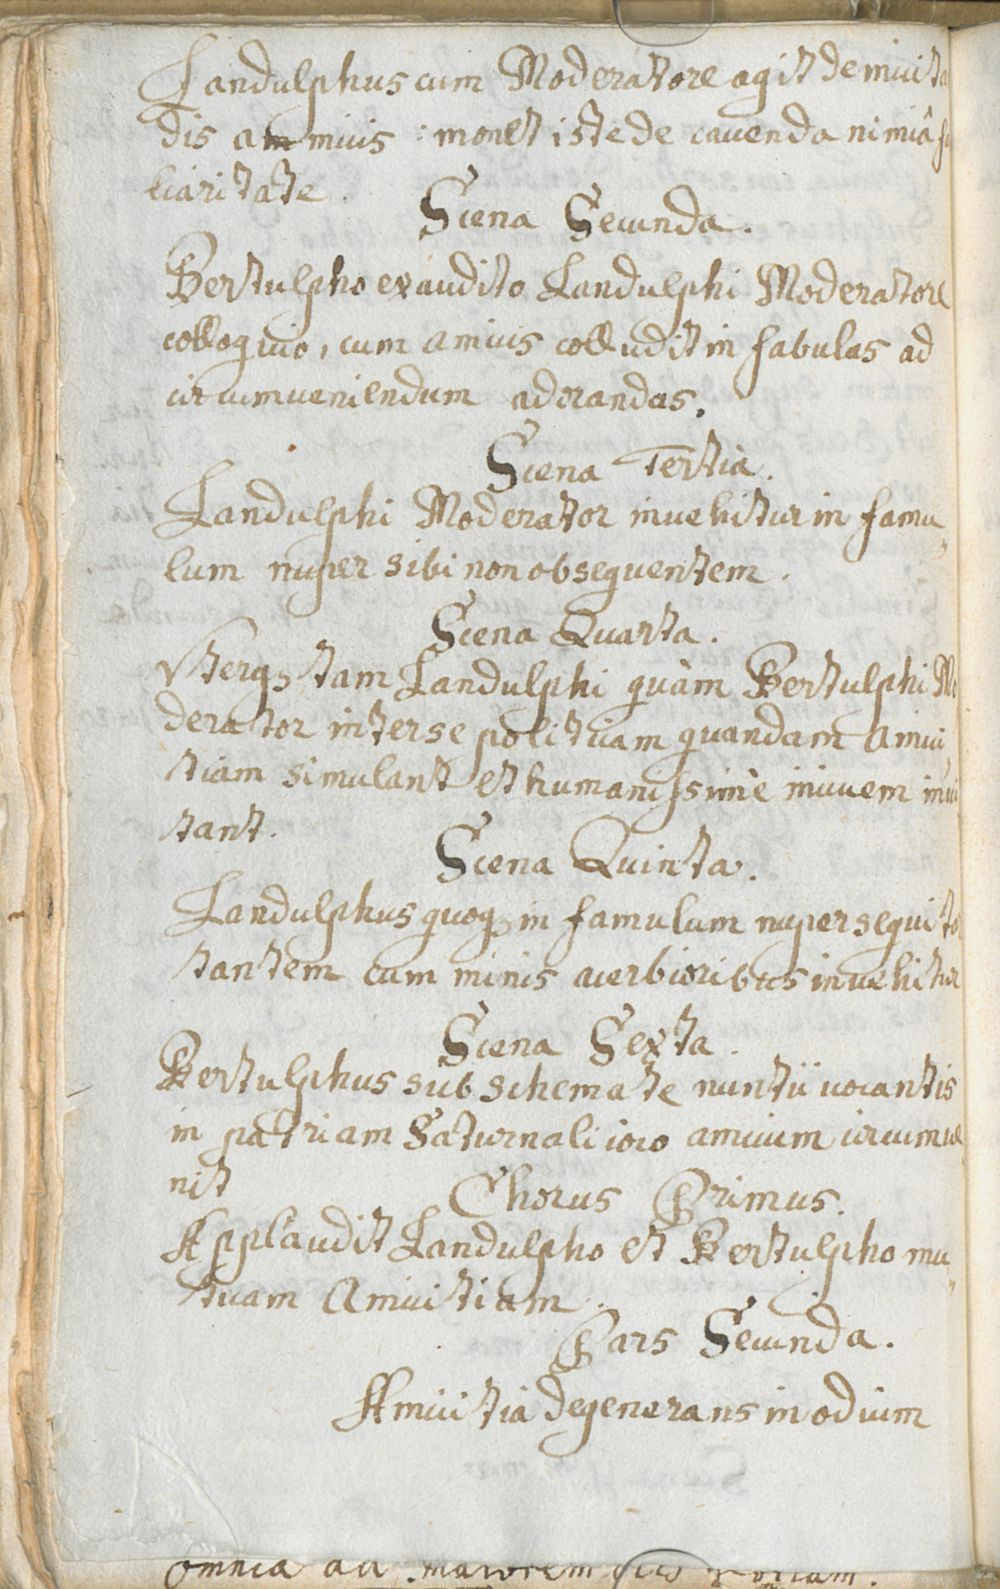 Landulphus cum Moderatore agit de invita
dis ammicis : monet iste de cavenda nimiâ
liaritate.
Scena Secunda.
Bertulpho exaudito Landulphi Moderatore
colloquio, cum amicis colludit in fabulas ad
circumveniendum adorandas.
Scena Tertia.
Landulphi Moderator invehitur in famu„
lum nuper sibi non obsequentem.
Scena Quarta.
Vterq; tam Landulphi quàm Bertulphi Mo
derator inter se politicam quandam amici„
tiam simulant et humanissimè invicem invi
tant.
Scena Quinta.
Landulphus quoq; in famulum nuper sequito
tantem cum minis acerbioribus invehitur
Scena Sexta.
Bertulphus sub schemate nuntii vocantis
in patriam Saturnali ioco amicum circumve
nit
Chorus Primus.
Applaudit Landulpho et Bertulpho mu„
tuam Amicitiam.
Pars Secunda.
Amicitia degenerans in odium
omnia ad maiorem